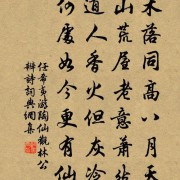 木落同高八月天
山荒屋老意蕭然
道人香火但灰冷
何處如今更有仙
任希夷游陶仙觀林公
辯詩詞典網集